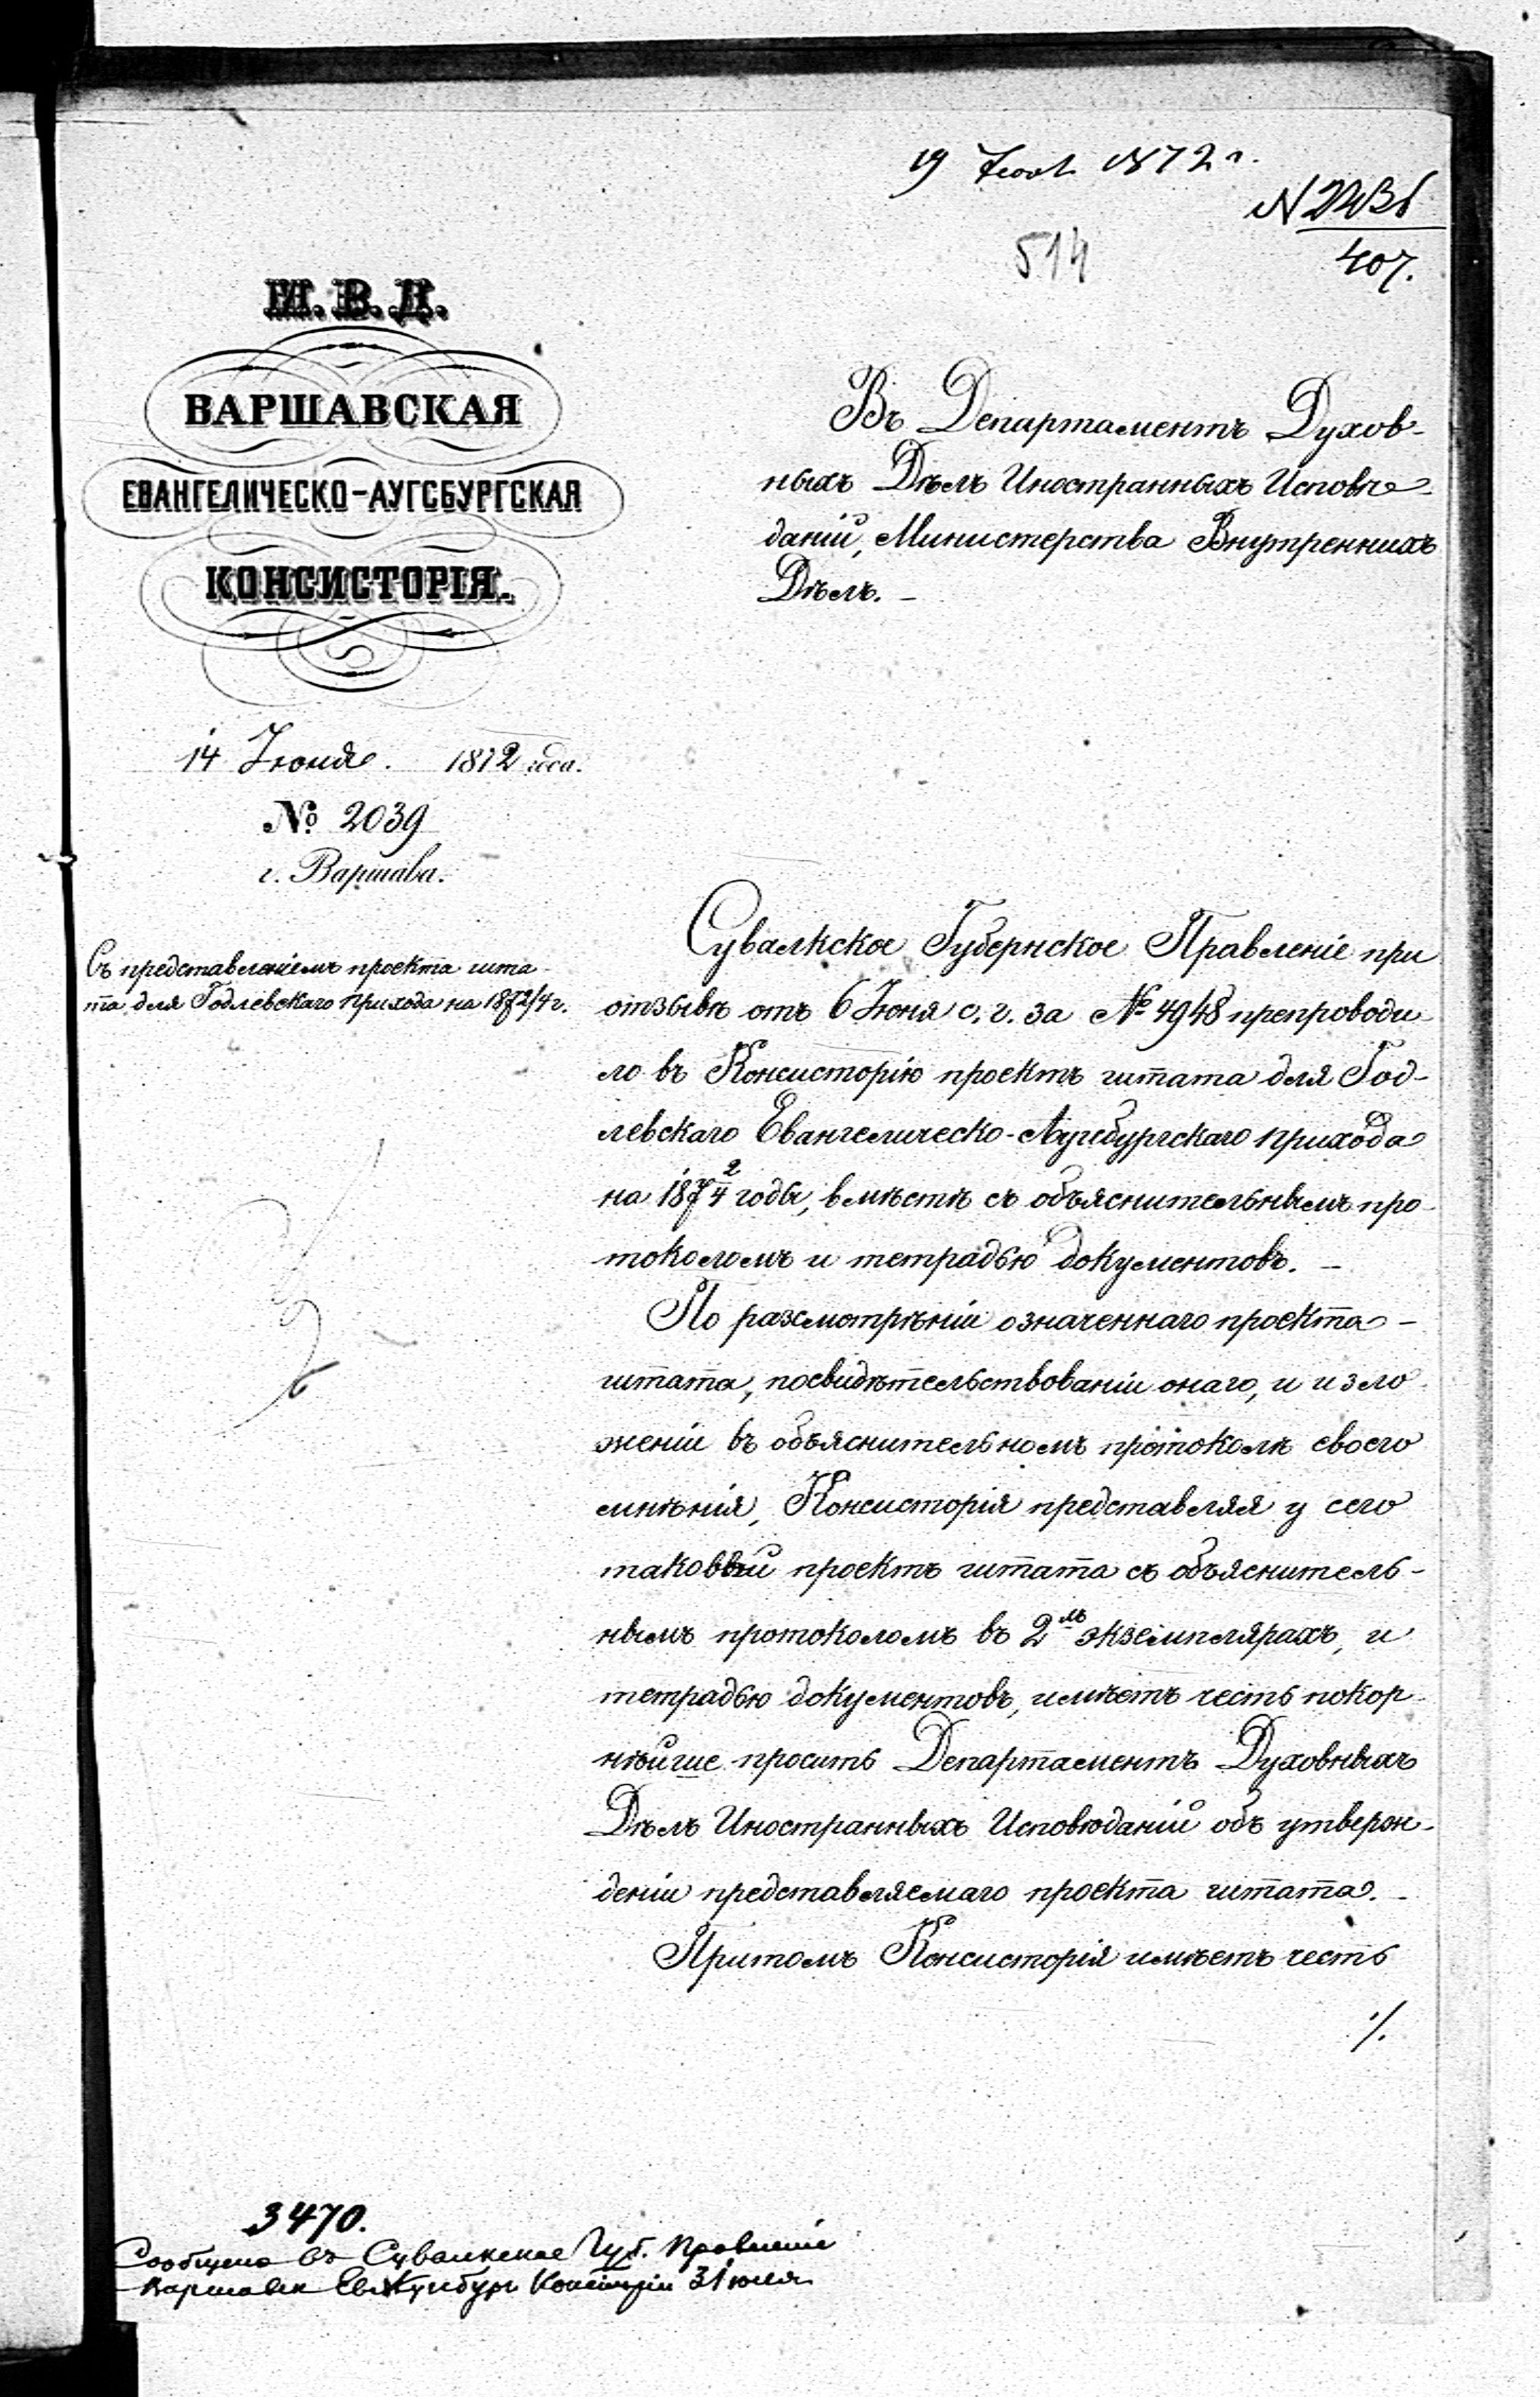 19 1872 г.
№
407.
514
М. В. Д.
ВАРШАВСКАЯ
ЕВАНГЕЛИЧЕСКО-АУГСБУРГСКАЯ
КОНСИСТОРІЯ.
14 Іюня. 1872 года.
№ 2039
г. Варшава.
Съ представленіемъ проекта шта-
та для Годлевскаго прихода на 1872/4 г.
Въ Департаментъ Духов-
ныхъ Дѣлъ Иностранныхъ Исповѣ-
даній, Министерства Внутреннихъ
Дѣлъ. –
Сувалкское Губернское Правленіе при
отзывѣ отъ 6 Іюня с. г. за № 4948 препроводи-
ло въ Консисторію проектъ штата для Год-
левскаго Евангелическо-Аугсбургскаго прихода
на 187 2/4 годы, вмѣстѣ съ объяснительнымъ про-
токоломъ и тетрадью документовъ. –
По разсмотрѣніи означеннаго проекта –
штата, посвидѣтельствованіи онаго, и изло-
женіи въ объяснительномъ протоколѣ своего
мнѣнія, Консисторія представляя у сего
таковый проектъ штата съ объяснитель-
нымъ протоколомъ въ 2хъ экземплярахъ, и
тетрадью документовъ, имѣетъ честь покор-
нѣйше просить Департаментъ Духовныхъ
Дѣлъ Иностранныхъ Исповѣданій объ утверж-
деніи представляемаго проекта штата. –
Притомъ Консисторія имѣетъ честь
./.
3470.
Сообщено въ Сувалкское Губ. Правленіе
Варшавск Ев Аугсбург Консисторіи 31 іюля